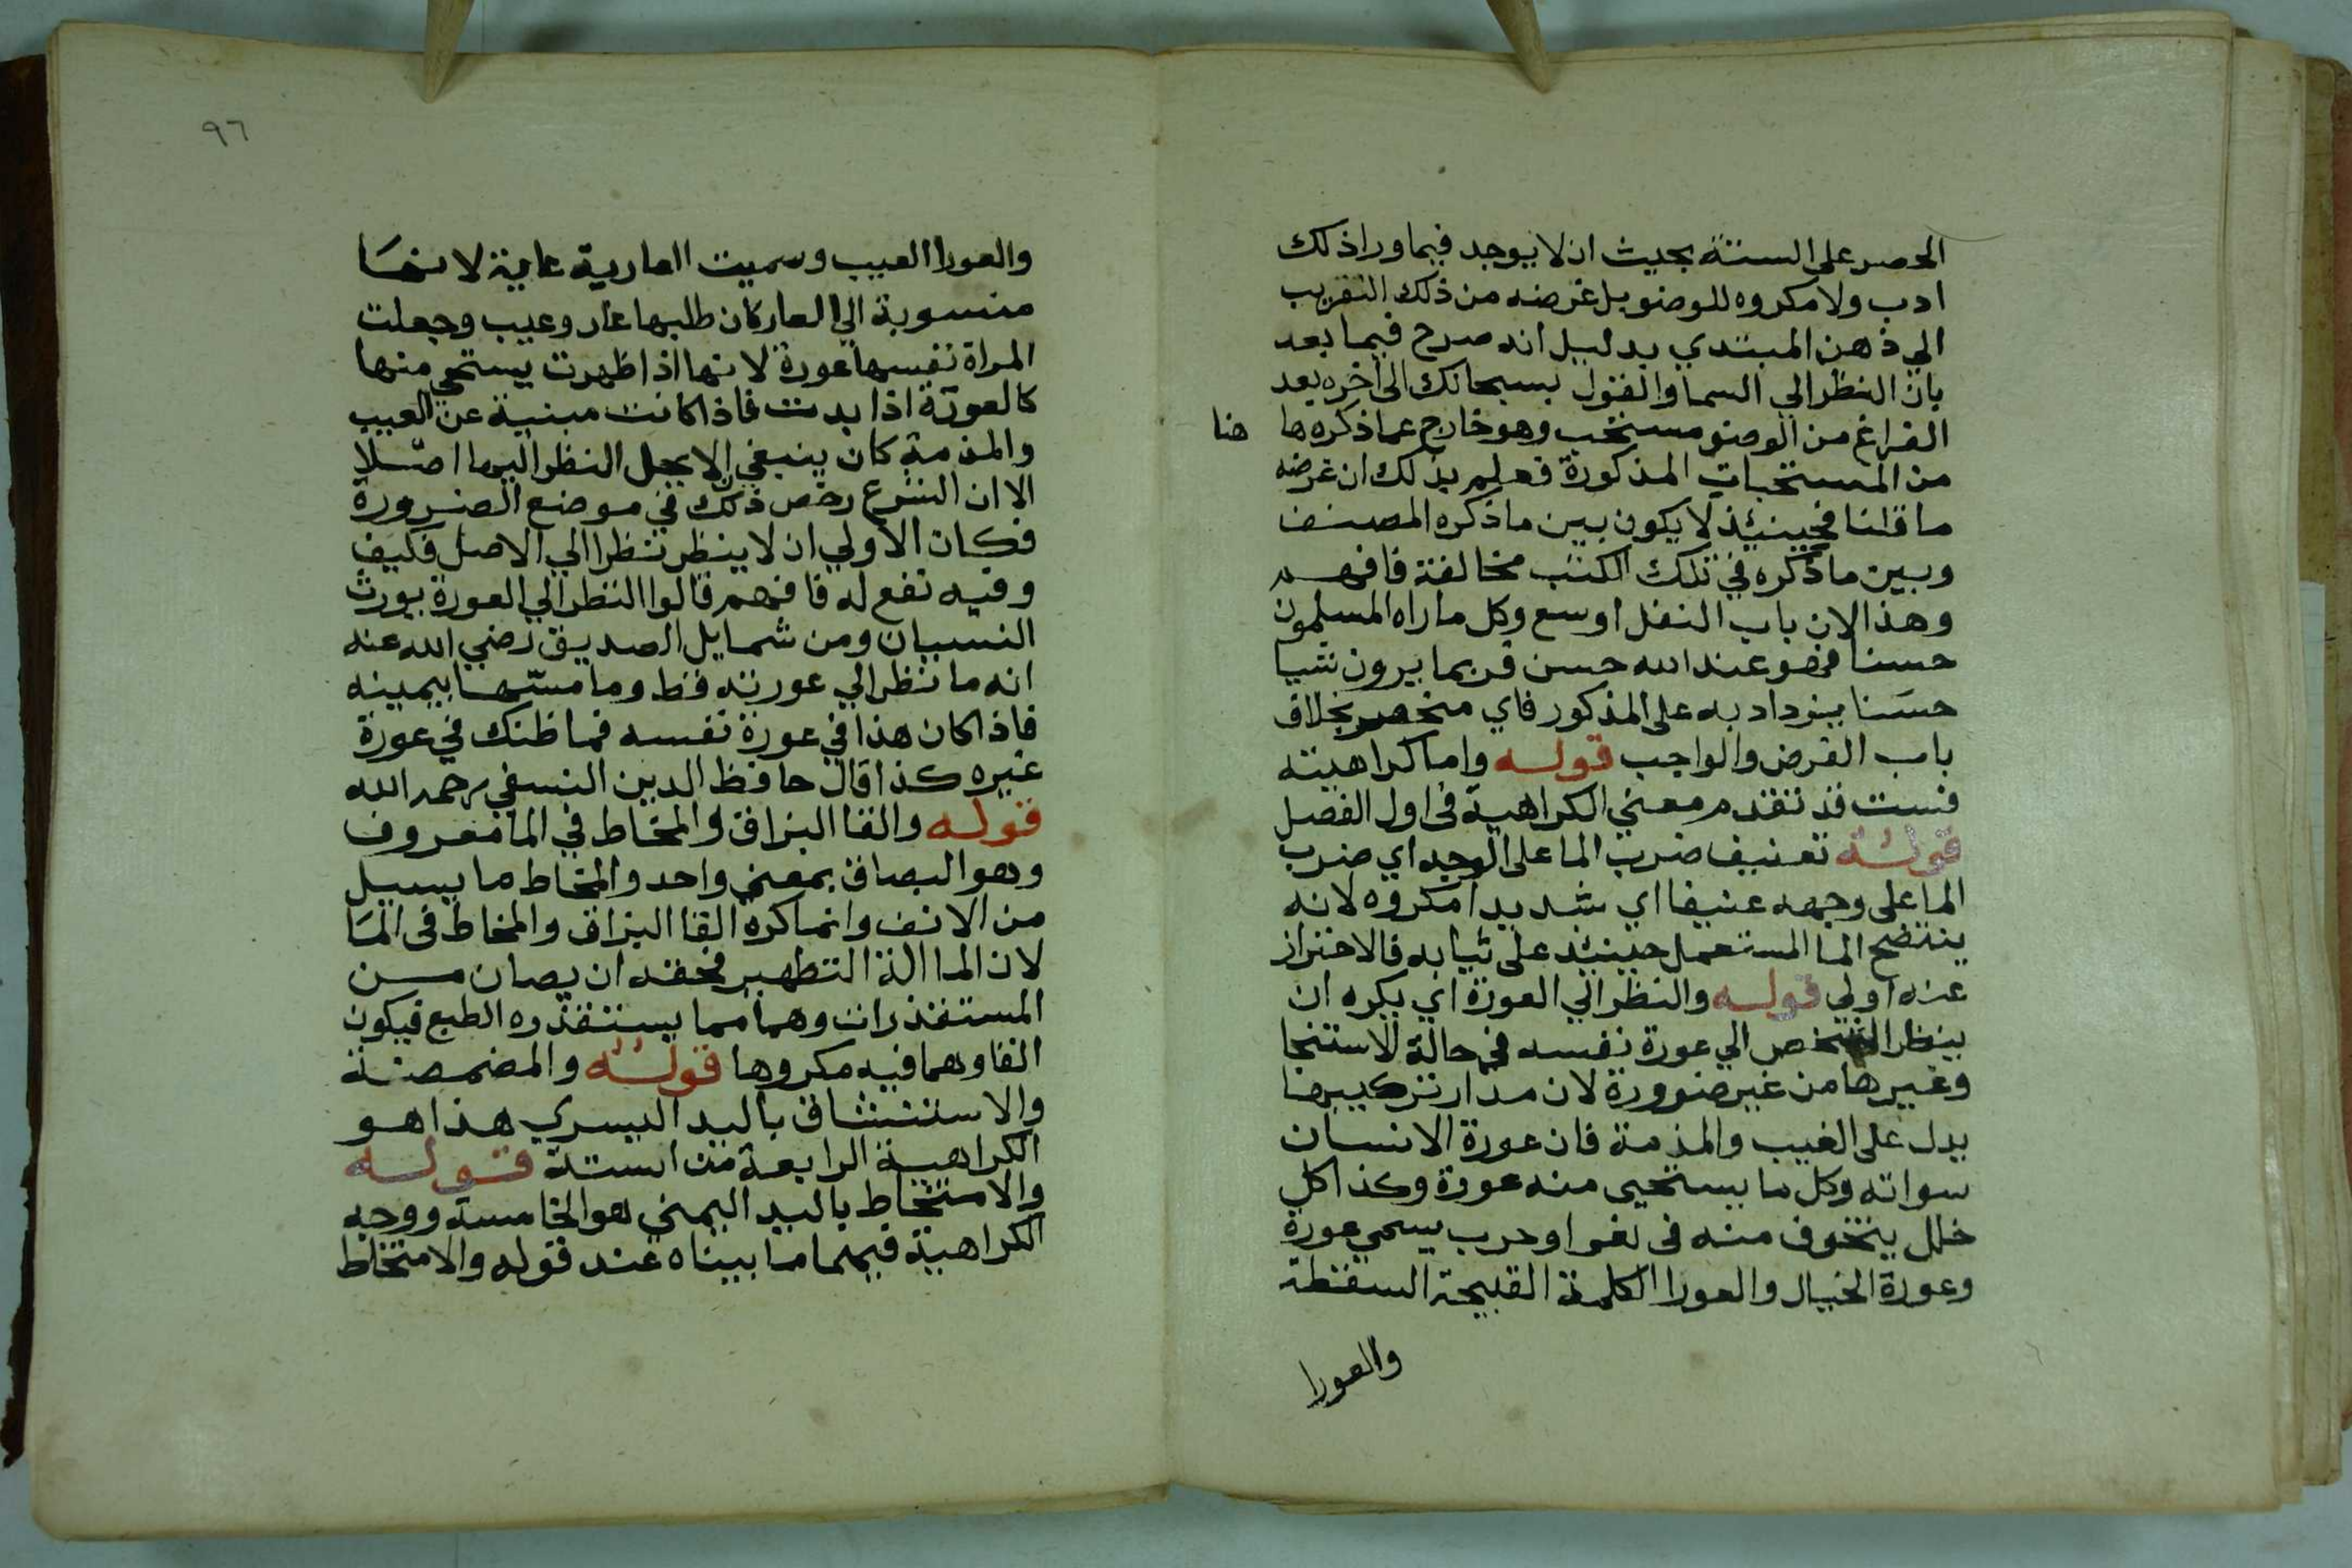 الحصر على الستة بحيث ان لا يوجد فيما ورا ذلك
ادب ولا مكروه للوضو بل غرضه من ذلك التقريب
الي ذهن المبتدي بدليل انه صرح فيما بعد
بان النظر الي السما والقول بسبحانك الى اخره بعد
الفراغ من الوضو مستحب وهو خارج عما ذكره ها هنا
من المستحبات المذكورة فعلم بذلك ان غرضه
ما قلنا فحينئذ لا يكون بين ما ذكره المصنف
وبين ما ذكره في تلك الكتب مخالفة فافهم
وهذا لان باب النفل اوسع وكل ما راه المسلمون
حسنا فهو عند الله حسن فربما يرون شيا
حسنا يزداد به على المذكور فاي منحصر بخلاف
باب الفرض والواجب قوله واما كراهيته
فست قد تقدم معني الكراهية في اول الفصل
قوله تعنيف ضرب الما على الوجه اي ضرب
الما على وجهه عنيفا اي شديدا مكروه لانه
ينتضح الما المستعمل حينئذ على ثيابه فالاحتراز
عنه اولي قوله والنظر الي العورة اي يكره ان
ينظر الشخص الي عورة نفسه في حالة الاستنجا
وغيرها من غير ضرورة لان مدار تركيبها
يدل على العيب والمذمة فان عورة الانسان
سواته وكل ما يستحيى منه عورة وكذا كل
خلل يتخوف منه في ثغر او حرب يسمي عورة
وعورة الجبال والعورا الكلمة القبيحة السقطة
والعورا
٩٦
والعورا العيب وسميت العارية عارية لانها
منسوبة الي العار كان طلبها عار وعيب وجعلت
المراة نفسها عورة لانها اذا ظهرت يستحي منها
كالعورة اذا بدت فاذا كانت مبنية عن العيب
والمذمة كان ينبغي الا يحل النظر اليها اصلا
الا ان الشرع رخص ذلك في موضع الضرورة
فكان الاولي ان لا ينظر نظرا الي الاصل فكيف
وفيه نفع له فافهم قالوا النظر الي العورة يورث
النسيان ومن شمايل الصديق رضي الله عنه
انه ما نظر الي عورته قط وما مسها بيمينه
فاذا كان هذا في عورة نفسه فما ظنك في عورة
غيره كذا قال حافظ الدين النسفي رحمه الله
قوله والقا البزاق والمخاط في الما معروف
وهو البصاق بمعني واحد والمخاط ما يسيل
من الانف وانما كره القا البزاق والمخاط في الما
لان الما الة التطهير فحقه ان يصان من
المستقذرات وهما مما يستقذره الطبع فيكون
القاوهما فيه مكروها قوله والمضمضة
والاستنشاق باليد اليسري هذا هو
الكراهية الرابعة من الستة قوله
والامتخاط باليد اليمني هو الخامسة ووجه
الكراهية فيهما ما بيناه عند قوله والامتخاط